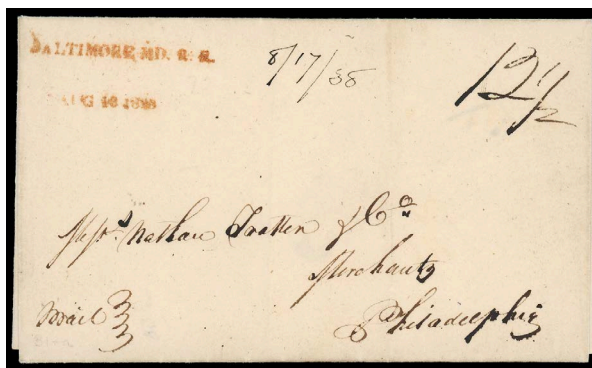 BALTIMORE MD. R. R.
AUG 18 1838
8/17/38
12 1/2
Messrs. Nathan Trotter & Co.
Merchants
Philadelphia
Mail